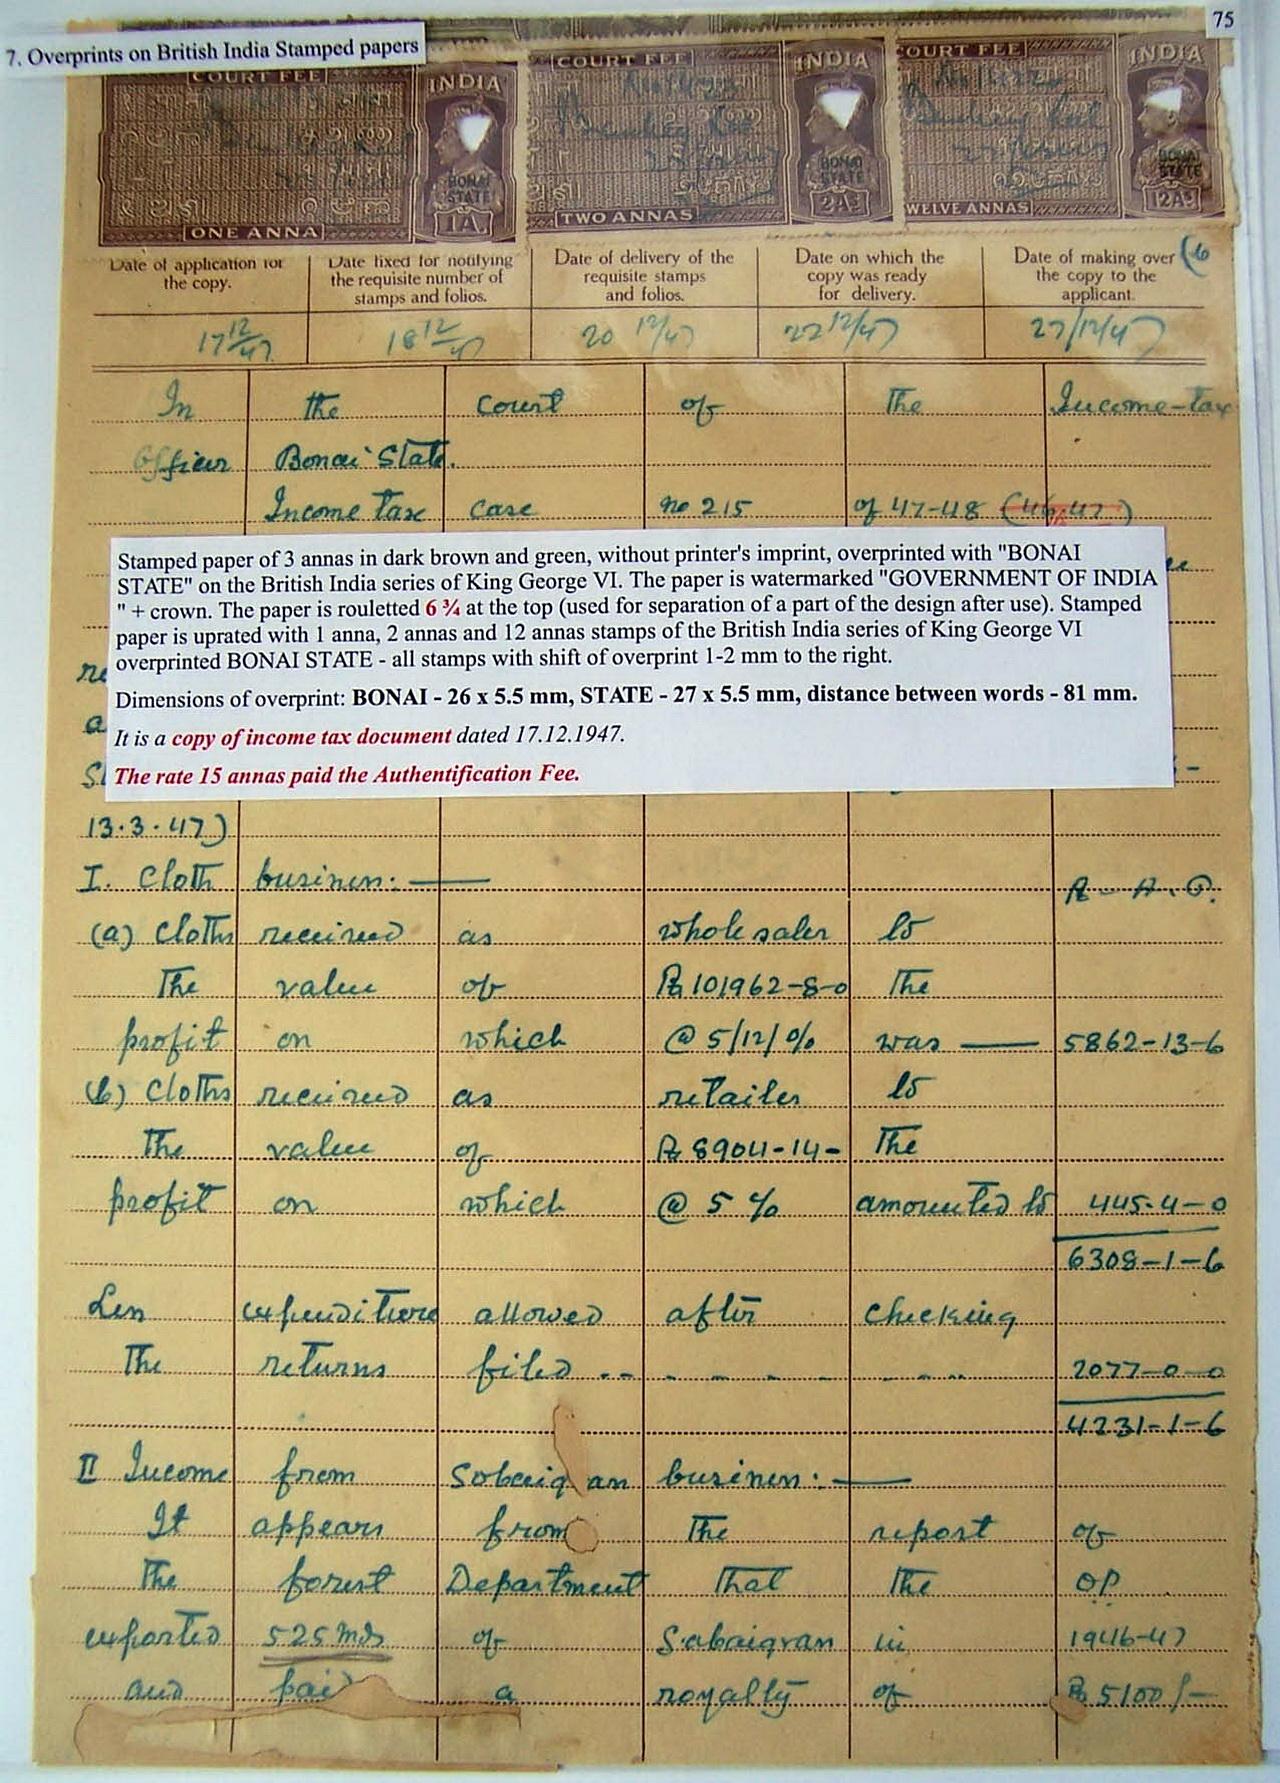 75
7. Overprints on British India Stamped papers
COURT FEE INDIA COURT FEE INDIA COURT FEE INDIA
BONAI STATE BONAI STATE BONAI STATE
ONE ANNA 1A. TWO ANNAS 2As. TWELVE ANNAS 12As.
Date of application for the copy.
Date fixed for notifying the requisite number of stamps and folios.
Date of delivery of the requisite stamps and folios.
Date on which the copy was ready for delivery.
Date of making over the copy to the applicant.
17 12/47 18 12/47 20 12/47 22 12/47 27/12/47
In the Court of the Income-tax
Officer Bonai State.
Income tax case no 215 of 47-48 (46-47)
Stamped paper of 3 annas in dark brown and green, without printer's imprint, overprinted with "BONAI
STATE" on the British India series of King George VI. The paper is watermarked "GOVERNMENT OF INDIA
" + crown. The paper is rouletted 6 ¾ at the top (used for separation of a part of the design after use). Stamped
paper is uprated with 1 anna, 2 annas and 12 annas stamps of the British India series of King George VI
overprinted BONAI STATE - all stamps with shift of overprint 1-2 mm to the right.
Dimensions of overprint: BONAI - 26 x 5.5 mm, STATE - 27 x 5.5 mm, distance between words - 81 mm.
It is a copy of income tax document dated 17.12.1947.
The rate 15 annas paid the Authentification Fee.
13.3.47)
I. Cloth business:—
Rs - A. P.
(a) Cloths received as wholesaler to
the value of Rs 101962-8-0 the
profit on which @ 5/12/% was — 5862-13-6
(b) Cloths received as retailer to
the value of Rs 8904-14- the
profit on which @ 5 % amounted to 445-4-0
6308-1-6
Less expenditure allowed after checking
the returns filed .. - - - - - .. 2077-0-0
4231-1-6
II Income from Sobaigran business:—
It appears from the report of
the forest Department that the OP
exported 525 mds of Sabaigran in 1946-47
and paid a royalty of Rs 5100/-